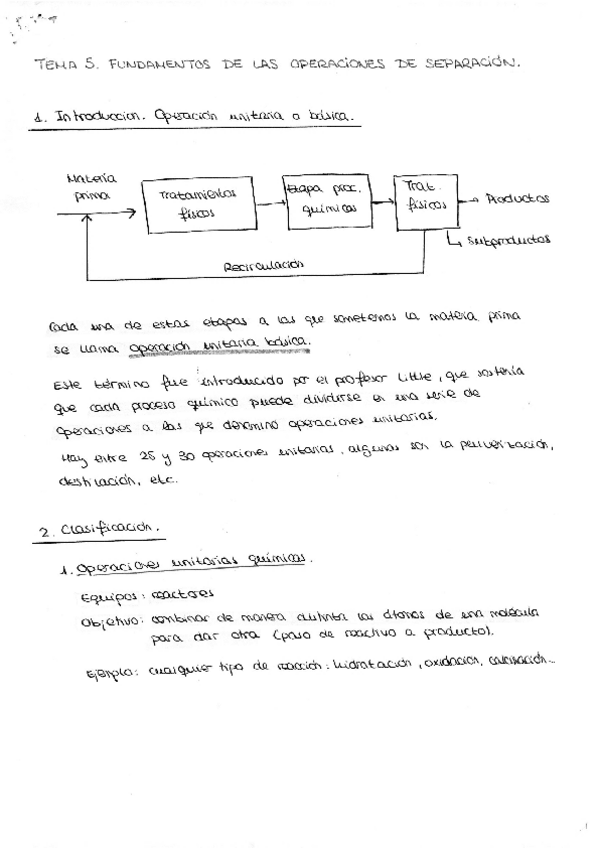 TEMA 5. FUNDAMENTOS DE LAS OPERACIONES DE SEPARACIÓN.
1. Introduccion. Operación unitaria o básica.
Materia
prima
Tratamientos
físicos
Etapa proc.
químicos
Trat.
físicos
Productos
Subproductos
Recirculación
Cada una de estas etapas a las que sometemos la materia prima
se llama operación unitaria básica.
Este término fue introducido por el profesor Little, que sostenía
que cada proceso químico puede dividirse en una serie de
operaciones a las que denominó operaciones unitarias.
Hay entre 25 y 30 operaciones unitarias, algunas son la pulverización,
destilación, etc.
2. Clasificación.
1. Operaciones unitarias químicas.
Equipos: reactores
Objetivo: combinar de manera distinta los átomos de una molécula
para dar otra (paso de reactivo a producto).
Ejemplo: cualquier tipo de reacción: hidratación, oxidación, calcinación...